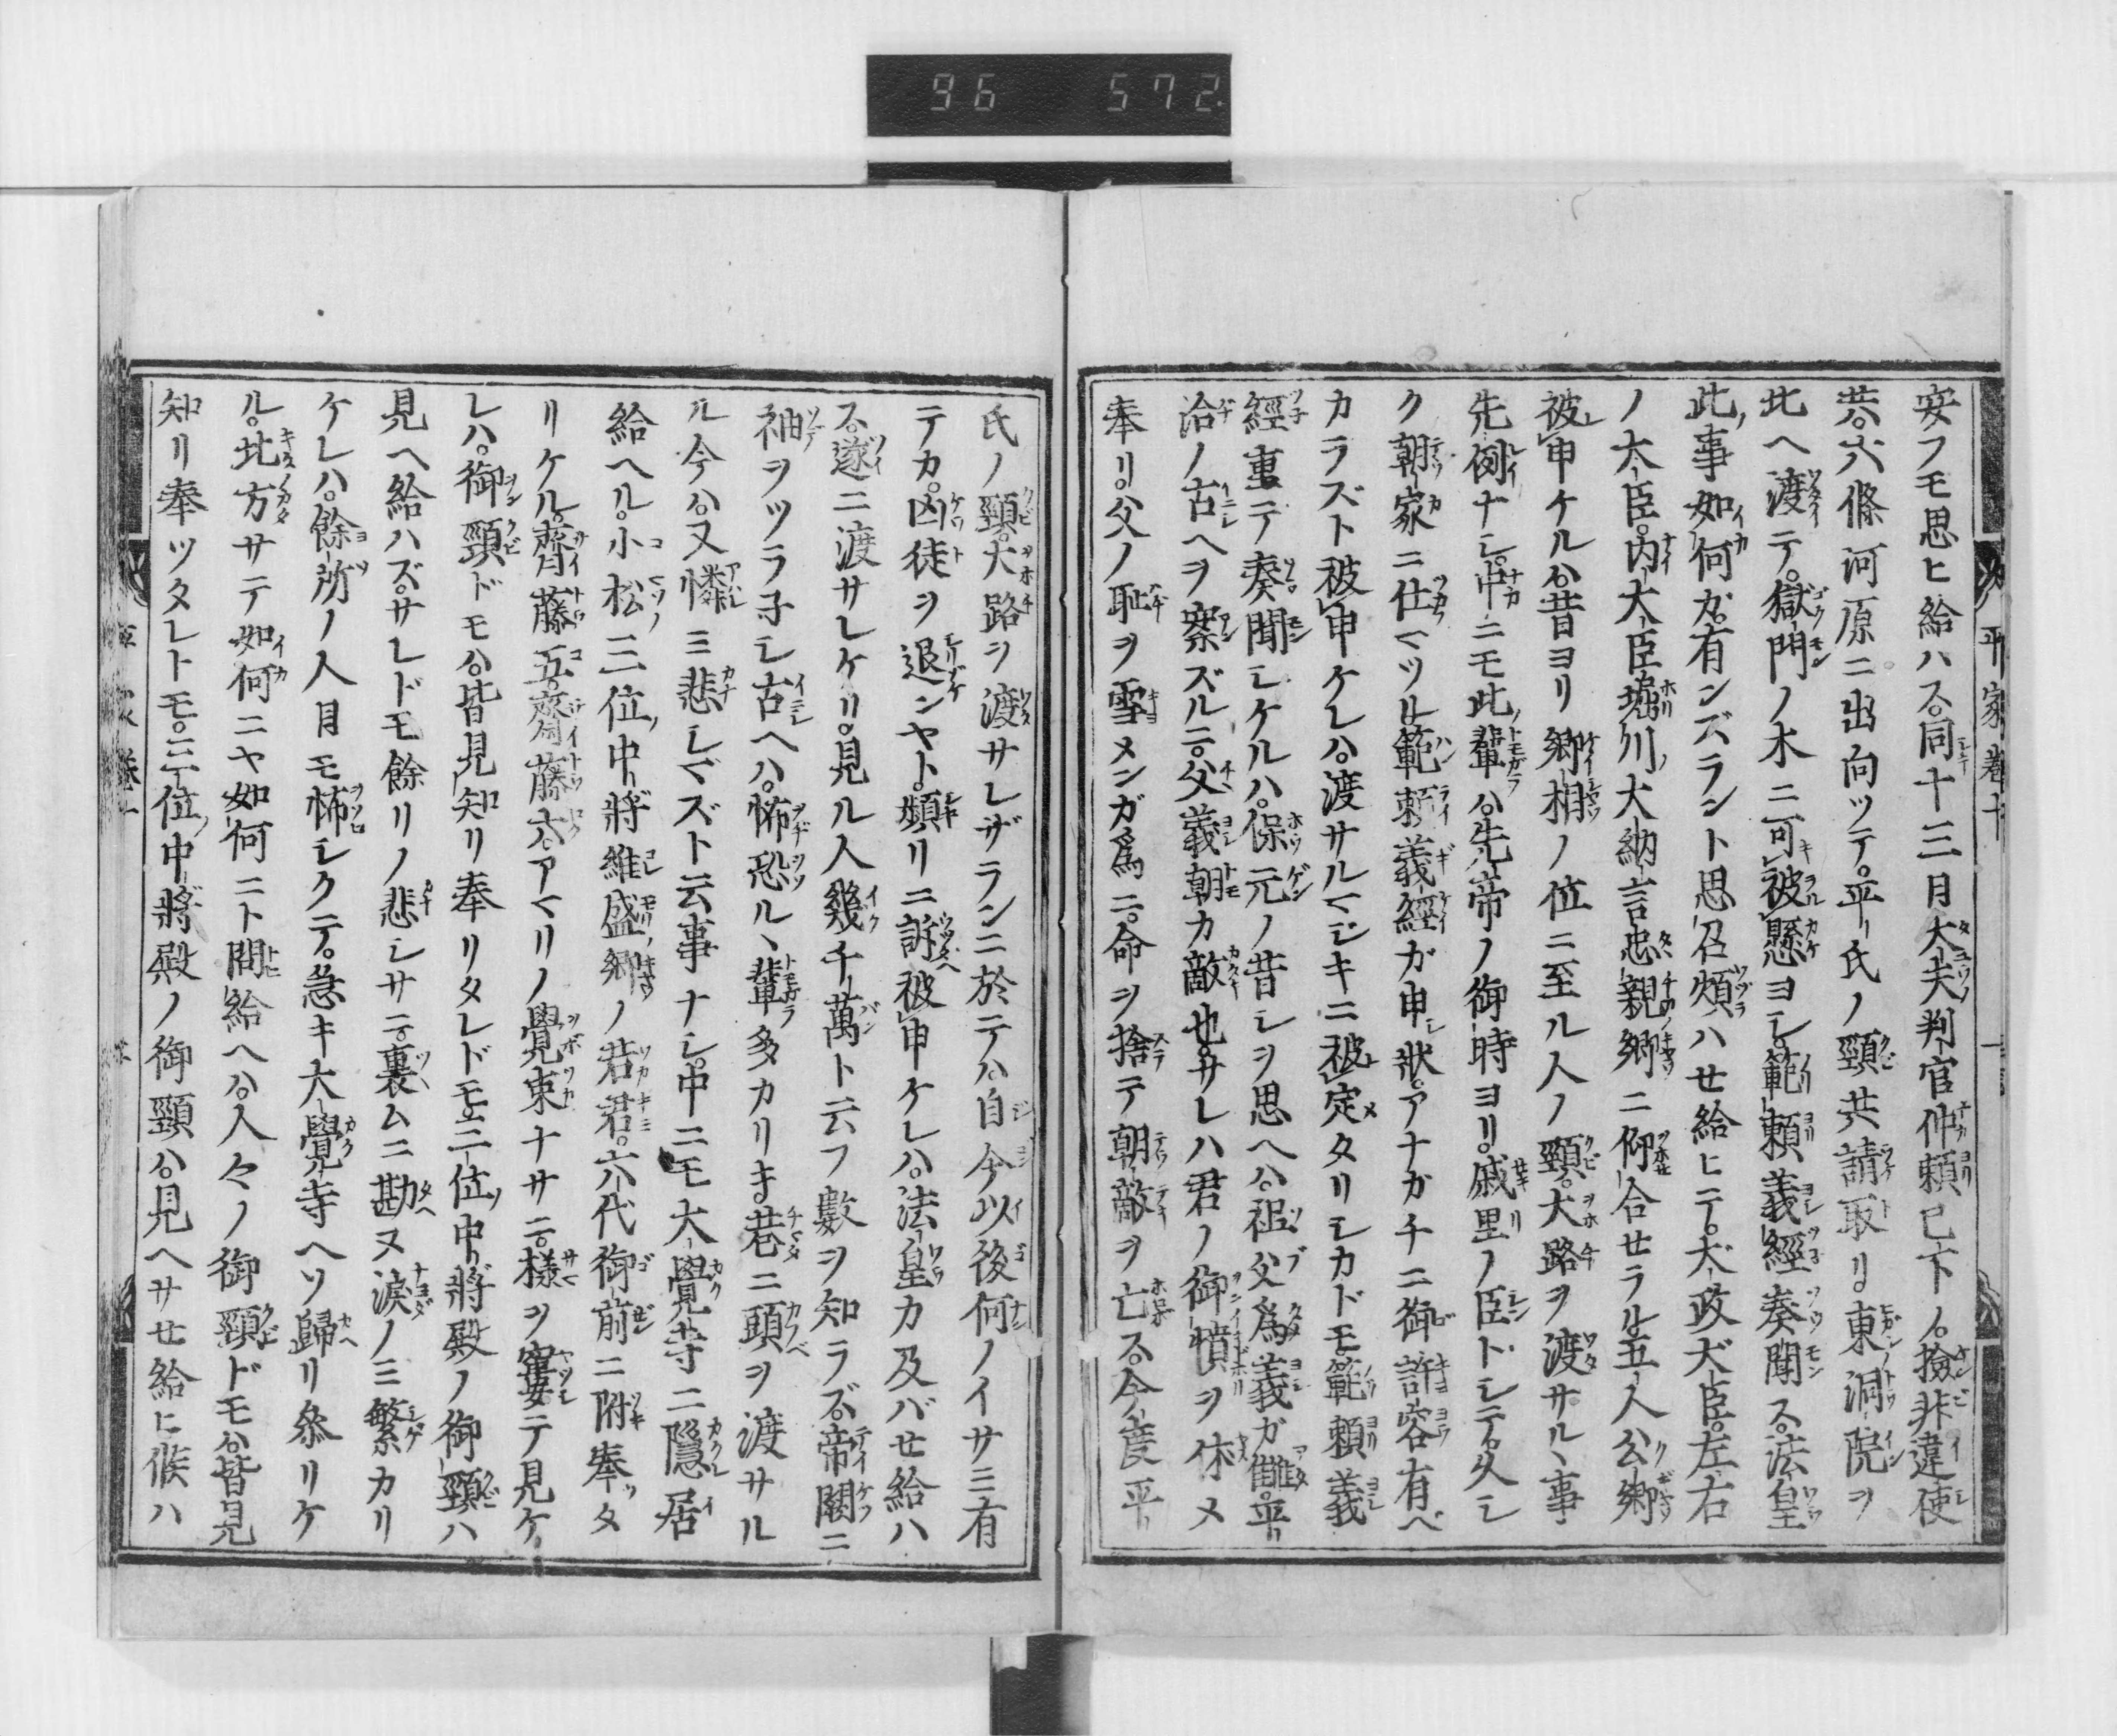 96 572
平家卷十
安フモ思ヒ給ハス。同十三月大夫判官仲頼已下ノ。撿非違使
共。六條河原ニ出向ツテ。平氏ノ頸共請取リ。東洞院ヲ
北ヘ渡テ。獄門ノ木ニ可被懸ヨシ。範頼義經奏聞ス。法皇
此事如何カ。有ンズラント思召煩ハせ給ヒテ。太政大臣。左右
ノ大臣。内大臣堀川大納言忠親卿ニ仰合せラル。五人公卿
被申ケルハ。昔ヨリ卿相ノ位ニ至ル人ノ頸。大路ヲ渡サルヽ事
先例ナシ。中ニモ此輩ハ。先帝ノ御時ヨリ。戚里ノ臣トシテ。久シ
ク朝家ニ仕マツル。範頼義經ガ申狀。アナガチニ御許容有ベ
カラズト被申ケレハ。渡サルマジキニ被定タリシカドモ。範頼義
經重テ奏聞シケルハ。保元ノ昔シヲ思ヘハ。祖父爲義ガ讎。平
治ノ古ヘヲ察ズルニ。父義朝カ敵也。サレハ君ノ御憤ヲ休メ
奉リ。父ノ恥ヲ雪メンガ爲ニ。命ヲ捨テ朝敵ヲ亡ス。今度平
氏ノ頸。大路ヲ渡サレザランニ於テハ。自今以後何ノイサミ有
テカ。凶徒ヲ退ンヤト。頻リニ訴被申ケレハ。法皇カ及バせ給ハ
ス。遂ニ渡サレケリ。見ル人幾千萬ト云フ數ヲ知ラズ。帝闕ニ
袖ヲツラ子シ古ヘハ。怖恐ルヽ輩多カリキ。巷ニ頭ヲ渡サル
ル今ハ。又憐ミ悲シマズト云事ナシ。中ニモ大覺寺ニ隱居
給ヘル。小松三位中將維盛卿ノ若君。六代御前ニ附奉ツタ
リケル。齋藤五。齋藤六。アマリノ覺束ナサニ。樣ヲ窶テ見ケ
レハ。御頸ドモハ。皆見知リ奉リタレドモ。三位中將殿ノ御頸ハ
見ヘ給ハズ。サレドモ餘リノ悲シサニ。裹ムニ勘ヌ淚ノミ繁カリ
ケレハ。餘所ノ人目モ怖シクテ。急キ大覺寺ヘソ歸リ參リケ
ル。北方サテ如何ニヤ如何ニト問給ヘハ。人々ノ御頸ドモハ。皆見
知リ奉ツタレトモ。三位中將殿ノ御頸ハ。見ヘサせ給ヒ候ハ